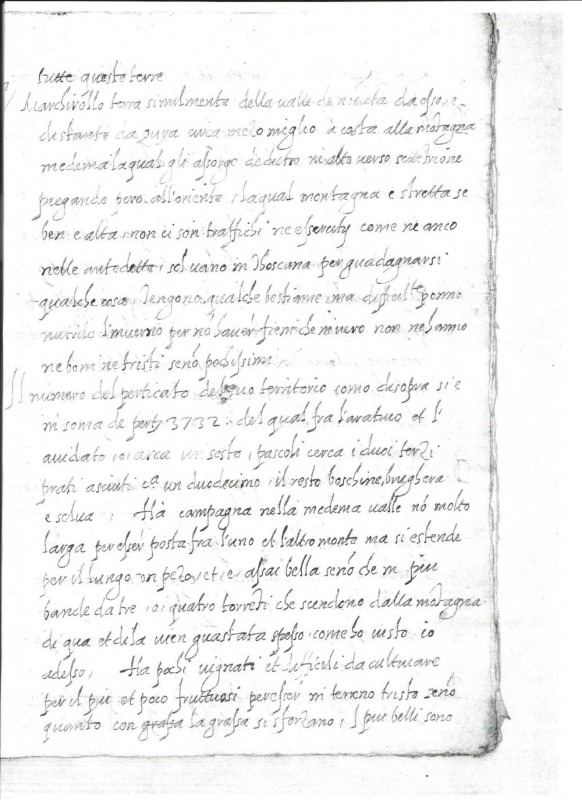 tutte queste terre
Marchirollo terra similmente della valle
distante da qura circa mezo miglio a costa alla mōtagna
medema laqual gli assorge dedietro in alto verso settētrione
piegando pero all'oriente, laqual montagna e stretta se
ben e alta, non ci son traffichi ne essercitÿ come ne anco
nelle antedette, si chvano in Thoscana per guadagnarsi
qualche cosa, Tengono qualche bestiame, ma difficilte ponno
nutrirlo l'inverno per nō haver fieni che invero non ne hanno
ne boni ne tristi senō pochissimi
Il numero del perticato del suo territorio como disopra si e
in soma de pert. 3732. del qual fra l'aratino et l'
avidato, ci cerca un sesto, pascoli cerca i duoi terzi
prati asciuti ca un duodecimo, il resto boschine, brughera
e selva, Ha campagna nella medema valle nō molto
larga per esser posta fra l'uno et l'altro monte ma si estende
per il lungo un pezo, et e assai bella senō che in piu
bande da tre, o, quatro torreti che scendono dalla mōtagna
di qua et di la vien guastata spesso, come ho visto io
adesso, Ha pochi vignati et difficili da cultivare
per il piu et poco fruttuosi per esser in terreno tristo senō
quanto con grassa la grassa si sforzano, I piu belli sono